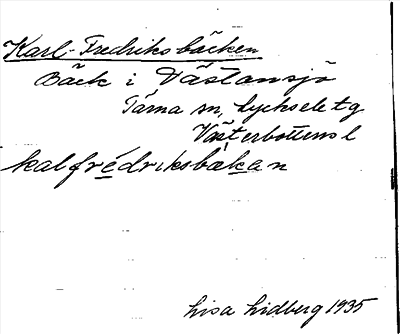 Karl-Fredriksbäcken
Bäck i Västansjö
Tärna sn, Lycksele tg
Västerbottens l
kalfrédriksbäkan
Lisa Lidberg 1935